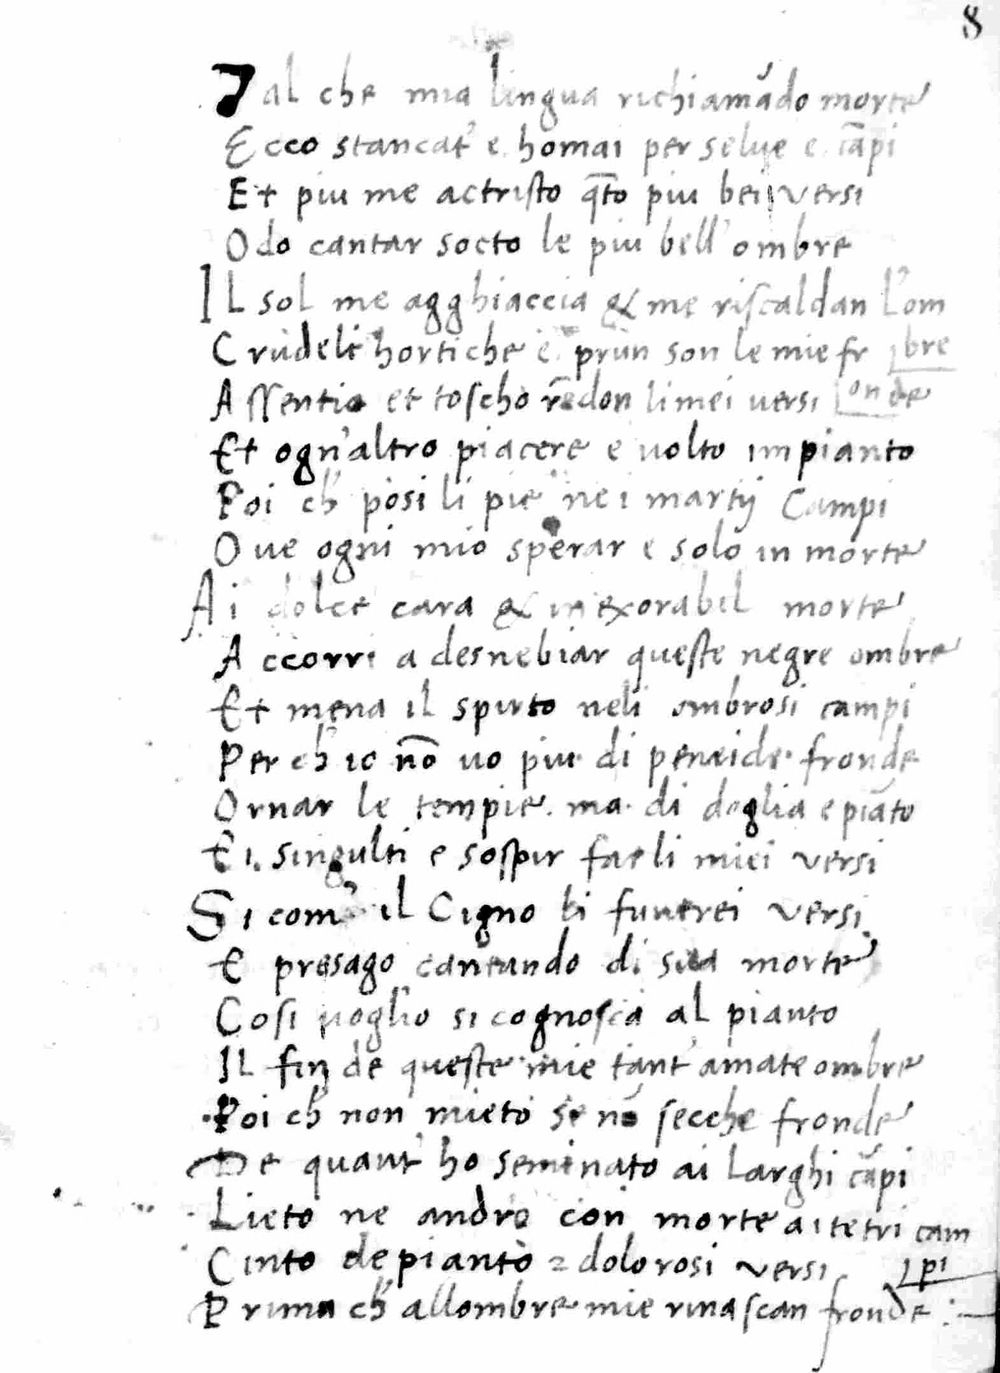 8
Tal che mia lingua richiamādo morte
Ecco stancat' e homai per selve e cāpi
Et piu me actristo q̄to piu bei versi
Odo cantar socto le piu bell'ombre
Il sol me agghiaccia & me riscaldan l'om
Crudeli hortiche e prun son le mie fr bre
Assentio et toscho rēdon li mei versi onde
Et ogn'altro piacere e volto im pianto
Poi ch' posi li pie ne i martij Campi
Ove ogni mio sperar e solo in morte
Ai dolce cara & inexorabil morte
Accorri a desnebiar queste negre ombre
Et mena il spirto neli ombrosi campi
Perch' io nō vo piu di peneide fronde
Ornar le tempie. ma di doglia e piāto
Ei. singulti e sospir far li miei versi
Si com' il Cigno di funerei versi
E presago cantando di sua morte
Cosi voglio si cognosca al pianto
Il fin de queste mie tant' amate ombre
Poi ch' non mieto se nō secche fronde
De quant' ho seminato ai larghi cāpi
Lieto ne andro con morte ai tetri cam
Cinto de pianto 2 dolorosi versi pi
Prima ch' allombre mie rinascan fronde :—